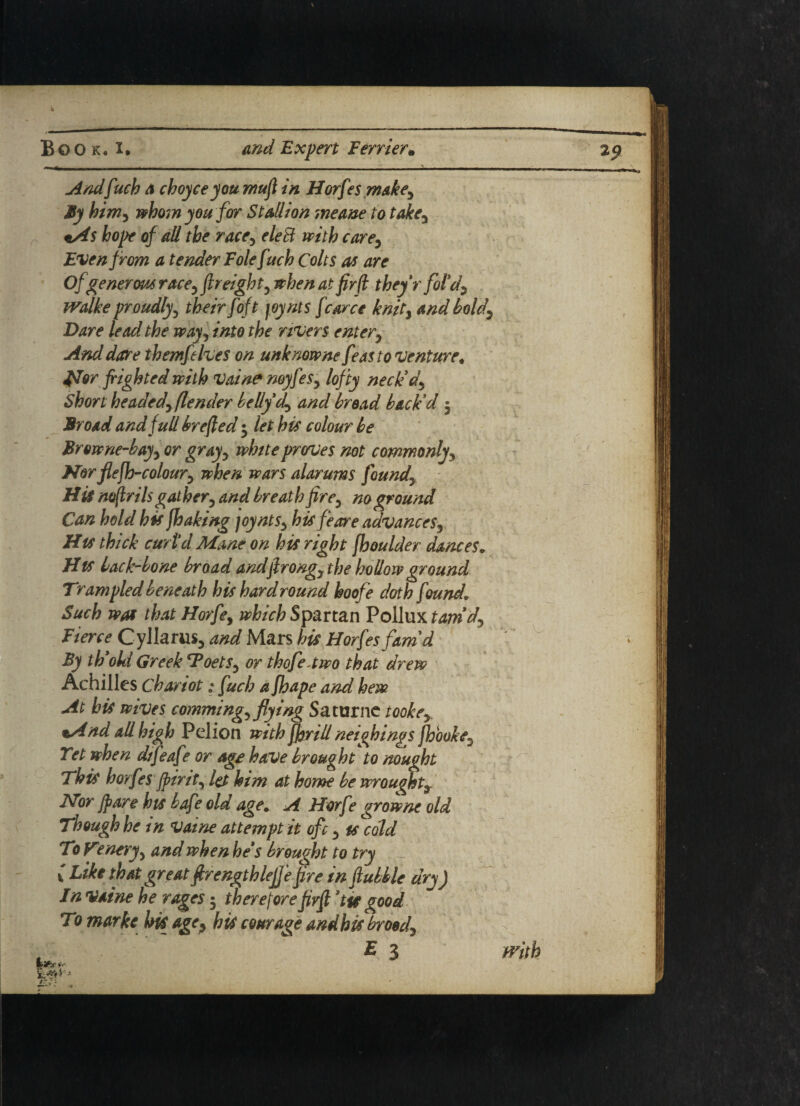 BOOK. I. and Expert Ferrier. 29
And such a choyce you must in Horses make,
By him, whom you for Stallion meane to take,
As hope of all the race, elect with care,
Even from a tender Fole such Colts as are
Of generous race, streight, when at first they'r fol'd,
Walke proudly, their soft joynts scarce knit, and bold,
Dare lead the way, into the rivers enter,
And dare themselves on unknowne seas to venture.
Nor frighted with vaine noyses, lofty neck'd,
Short headed, slender belly'd, and broad back'd;
Broad and full brested; let his colour be
Browne-bay, or gray, white proves not commonly,
Nor flesh-colour, when wars alarums sound,
His nostrils gather, and breath fire, no ground
Can hold his shaking joynts, his feare advances,
His thick curl'd Mane on his right shoulder dances.
His back-bone broad and strong, the hollow ground
Trampled beneath his hard round hoofe doth sound.
Such was that Horse, which Spartan Pollux tam'd,
Fierce Cyllarus, and Mars his Horses fam'd
By th'old Greek Poets, or those two that drew
Achilles Chariot: such a shape and hew
At his wives comming, flying Saturne tooke,
And all high Pelion with shrill neighings shooke,
Yet when disease or age have brought to nought
This horses spirit, let him at home be wrought,
Nor spare his base old age. A Horse growne old
Though he in vaine attempt it oft, is cold
To Venery, and when he's brought to try
(Like that great strengthlesse fire in stubble dry)
In vaine he rages; therefore first 'tis good
To marke his age, his courage and his brood,
E 3 With